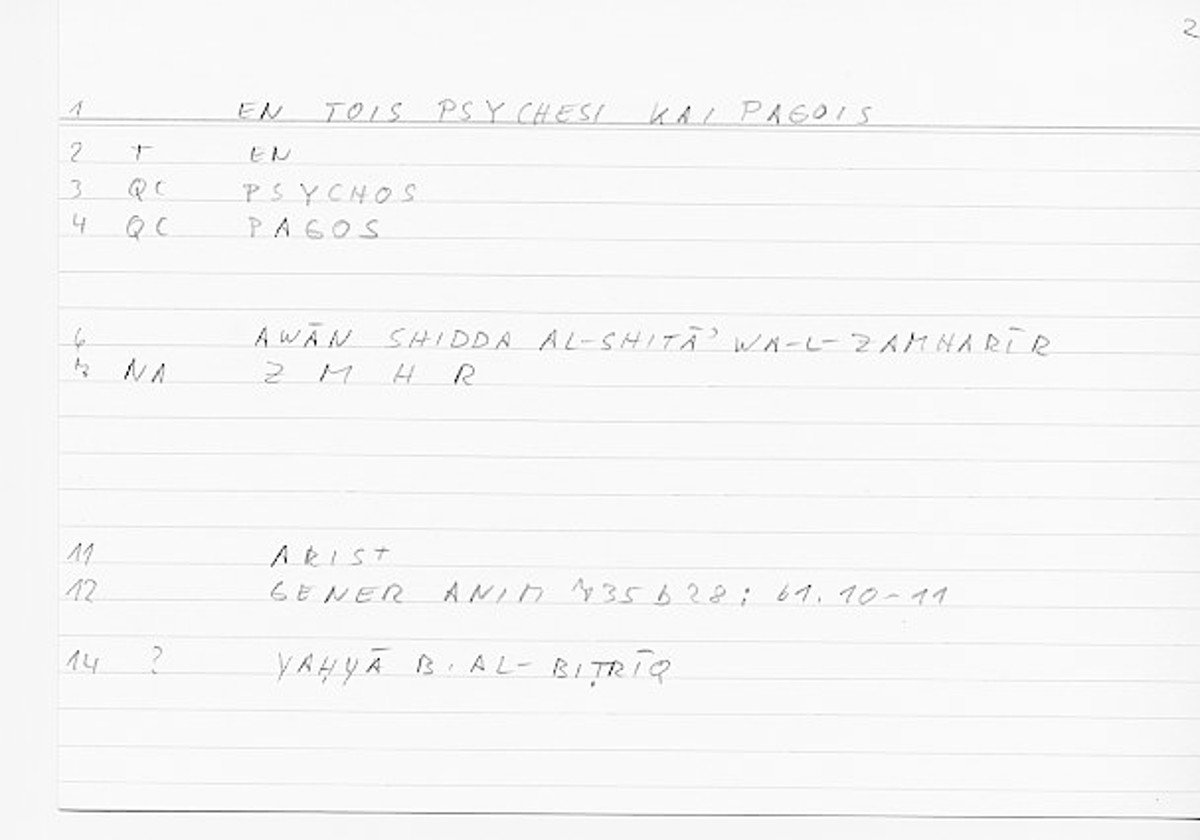 2
1 EN TOIS PSYCHESI KAI PAGOIS
2 T EN
3 QC PSYCHOS
4 QC PAGOS
6 AWĀN SHIDDA AL-SHITĀʾ WA-L-ZAMHARĪR
7 NA Z M H R
11 ARIST
12 GENER ANIM 735 b 28; 61.10-11
14 ? YAḤYĀ B. AL-BIṬRĪQ